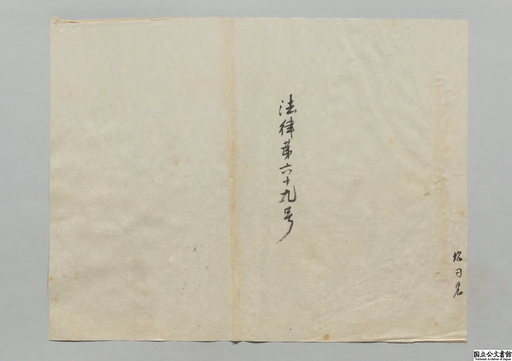 法律第六十九号
国立公文書館
National Archives of Japan